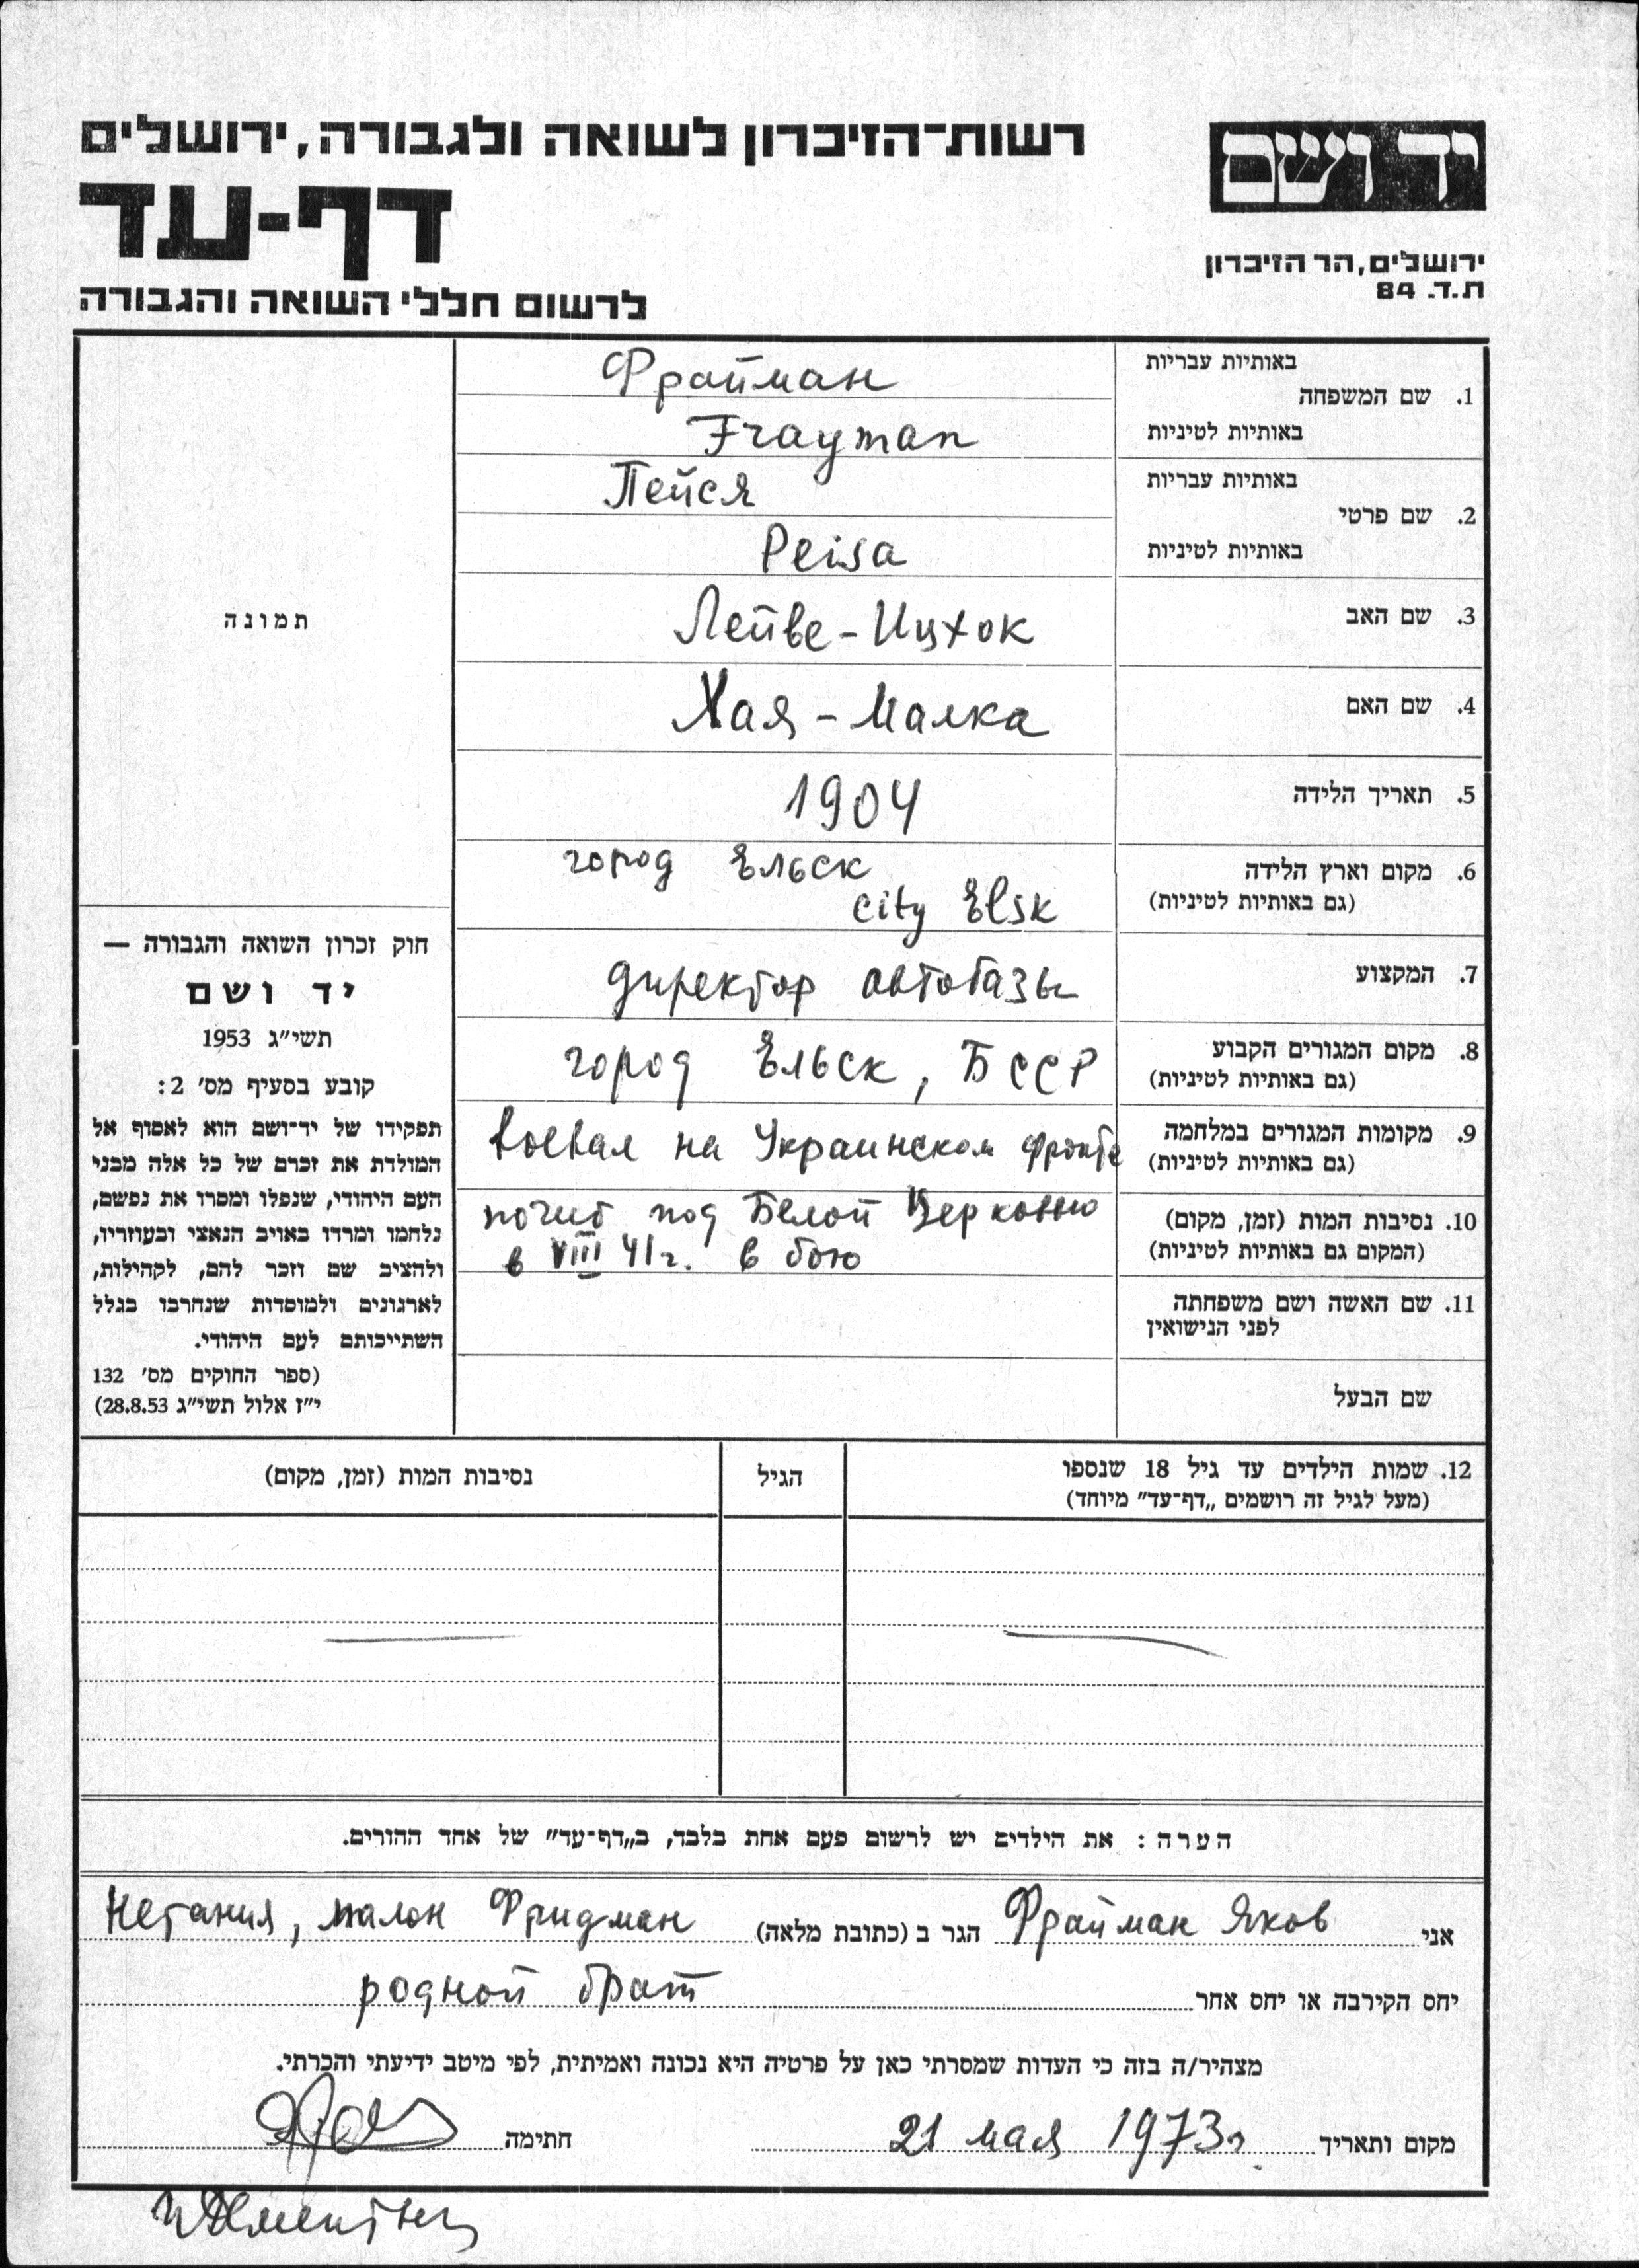 רשות־הזיכרון לשואה ולגבורה, ירושלים
יד ושם
דף-עד
ירושלים, הר הזיכרון
ת.ד. 84
לרשום חללי השואה והגבורה
באותיות עבריות
Фрайман
1. שם המשפחה
באותיות לטיניות
Frayman
באותיות עבריות
Пейся
2. שם פרטי
באותיות לטיניות
Peisa
3. שם האב
Лейве-Ицхок
4. שם האם
Хая-Малка
5. תאריך הלידה
1904
6. מקום וארץ הלידה
(גם באותיות לטיניות)
город Ельск
city Elsk
7. המקצוע
директор автобазы
8. מקום המגורים הקבוע
(גם באותיות לטיניות)
город Ельск, БССР
9. מקומות המגורים במלחמה
(גם באותיות לטיניות)
воевал на Украинском фронте
10. נסיבות המות (זמן, מקום)
(המקום גם באותיות לטיניות)
погиб под Белой Церковью
в VIII 41г. в бою
11. שם האשה ושם משפחתה
לפני הנישואין
שם הבעל
תמונה
חוק זכרון השואה והגבורה —
יד ושם
תשי״ג 1953
קובע בסעיף מס׳ 2:
תפקידו של יד־ושם הוא לאסוף אל
המולדת את זכרם של כל אלה מבני
העם היהודי, שנפלו ומסרו את נפשם,
נלחמו ומרדו באויב הנאצי ובעוזריו,
ולהציב שם וזכר להם, לקהילות,
לארגונים ולמוסדות שנחרבו בגלל
השתייכותם לעם היהודי.
(ספר החוקים מס׳ 132
י״ז אלול תשי״ג 28.8.53)
12. שמות הילדים עד גיל 18 שנספו
(מעל לגיל זה רושמים „דף־עד״ מיוחד)
הגיל
נסיבות המות (זמן, מקום)
הערה: את הילדים יש לרשום פעם אחת בלבד, ב„דף־עד״ של אחד ההורים.
אני Фрайман Яков הגר ב (כתובת מלאה) Нетания, малон Фридман
יחס הקירבה או יחס אחר родной брат
מצהיר/ה בזה כי העדות שמסרתי כאן על פרטיה היא נכונה ואמיתית, לפי מיטב ידיעתי והכרתי.
מקום ותאריך 21 мая 1973г. חתימה